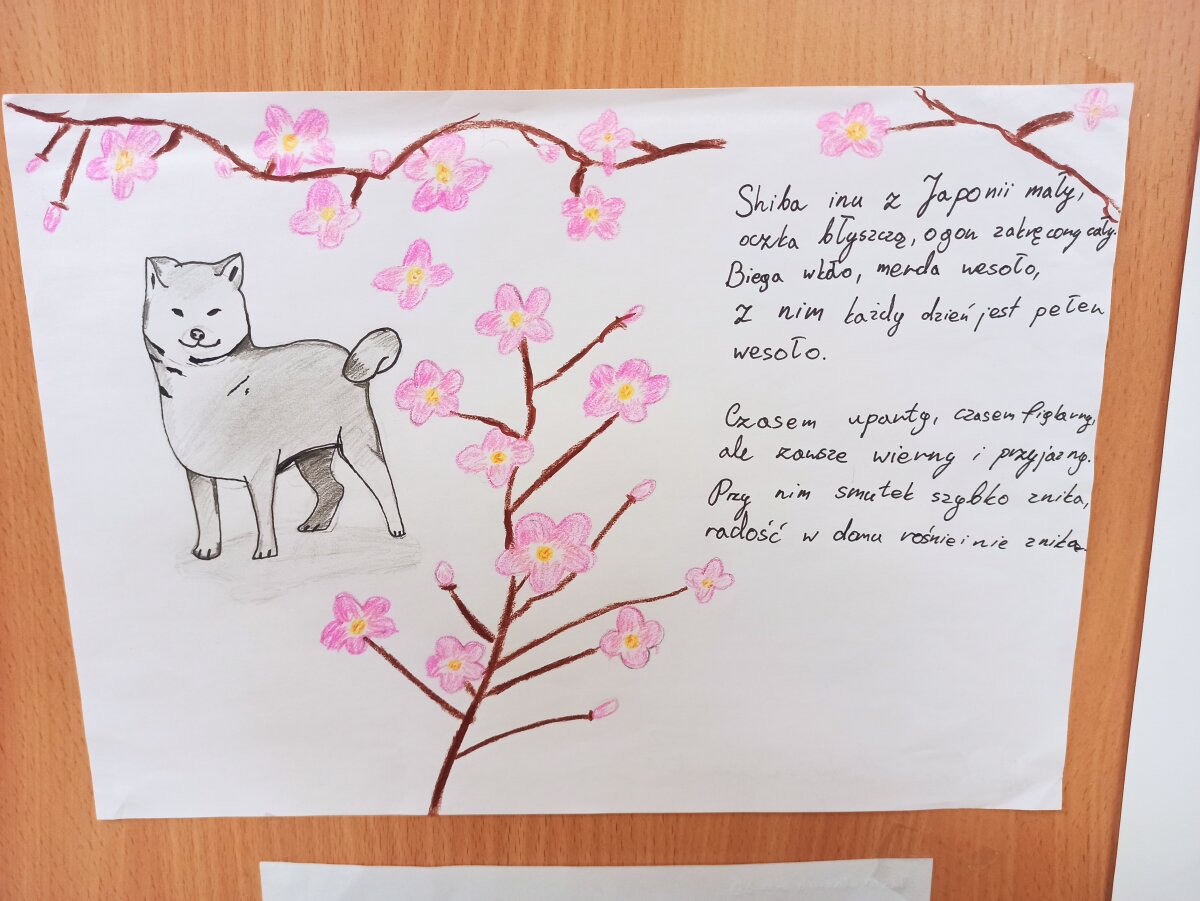 Shiba inu z Japonii mały,
oczka błyszczą, ogon zakręcony cały.
Biega wkło, merda wesoło,
z nim każdy dzień jest pełen
wesoło.
Czasem uparty, czasem figlarny,
ale zawsze wierny i przyjazny.
Przy nim smutek szybko znika,
radość w domu rośnie i nie znika.